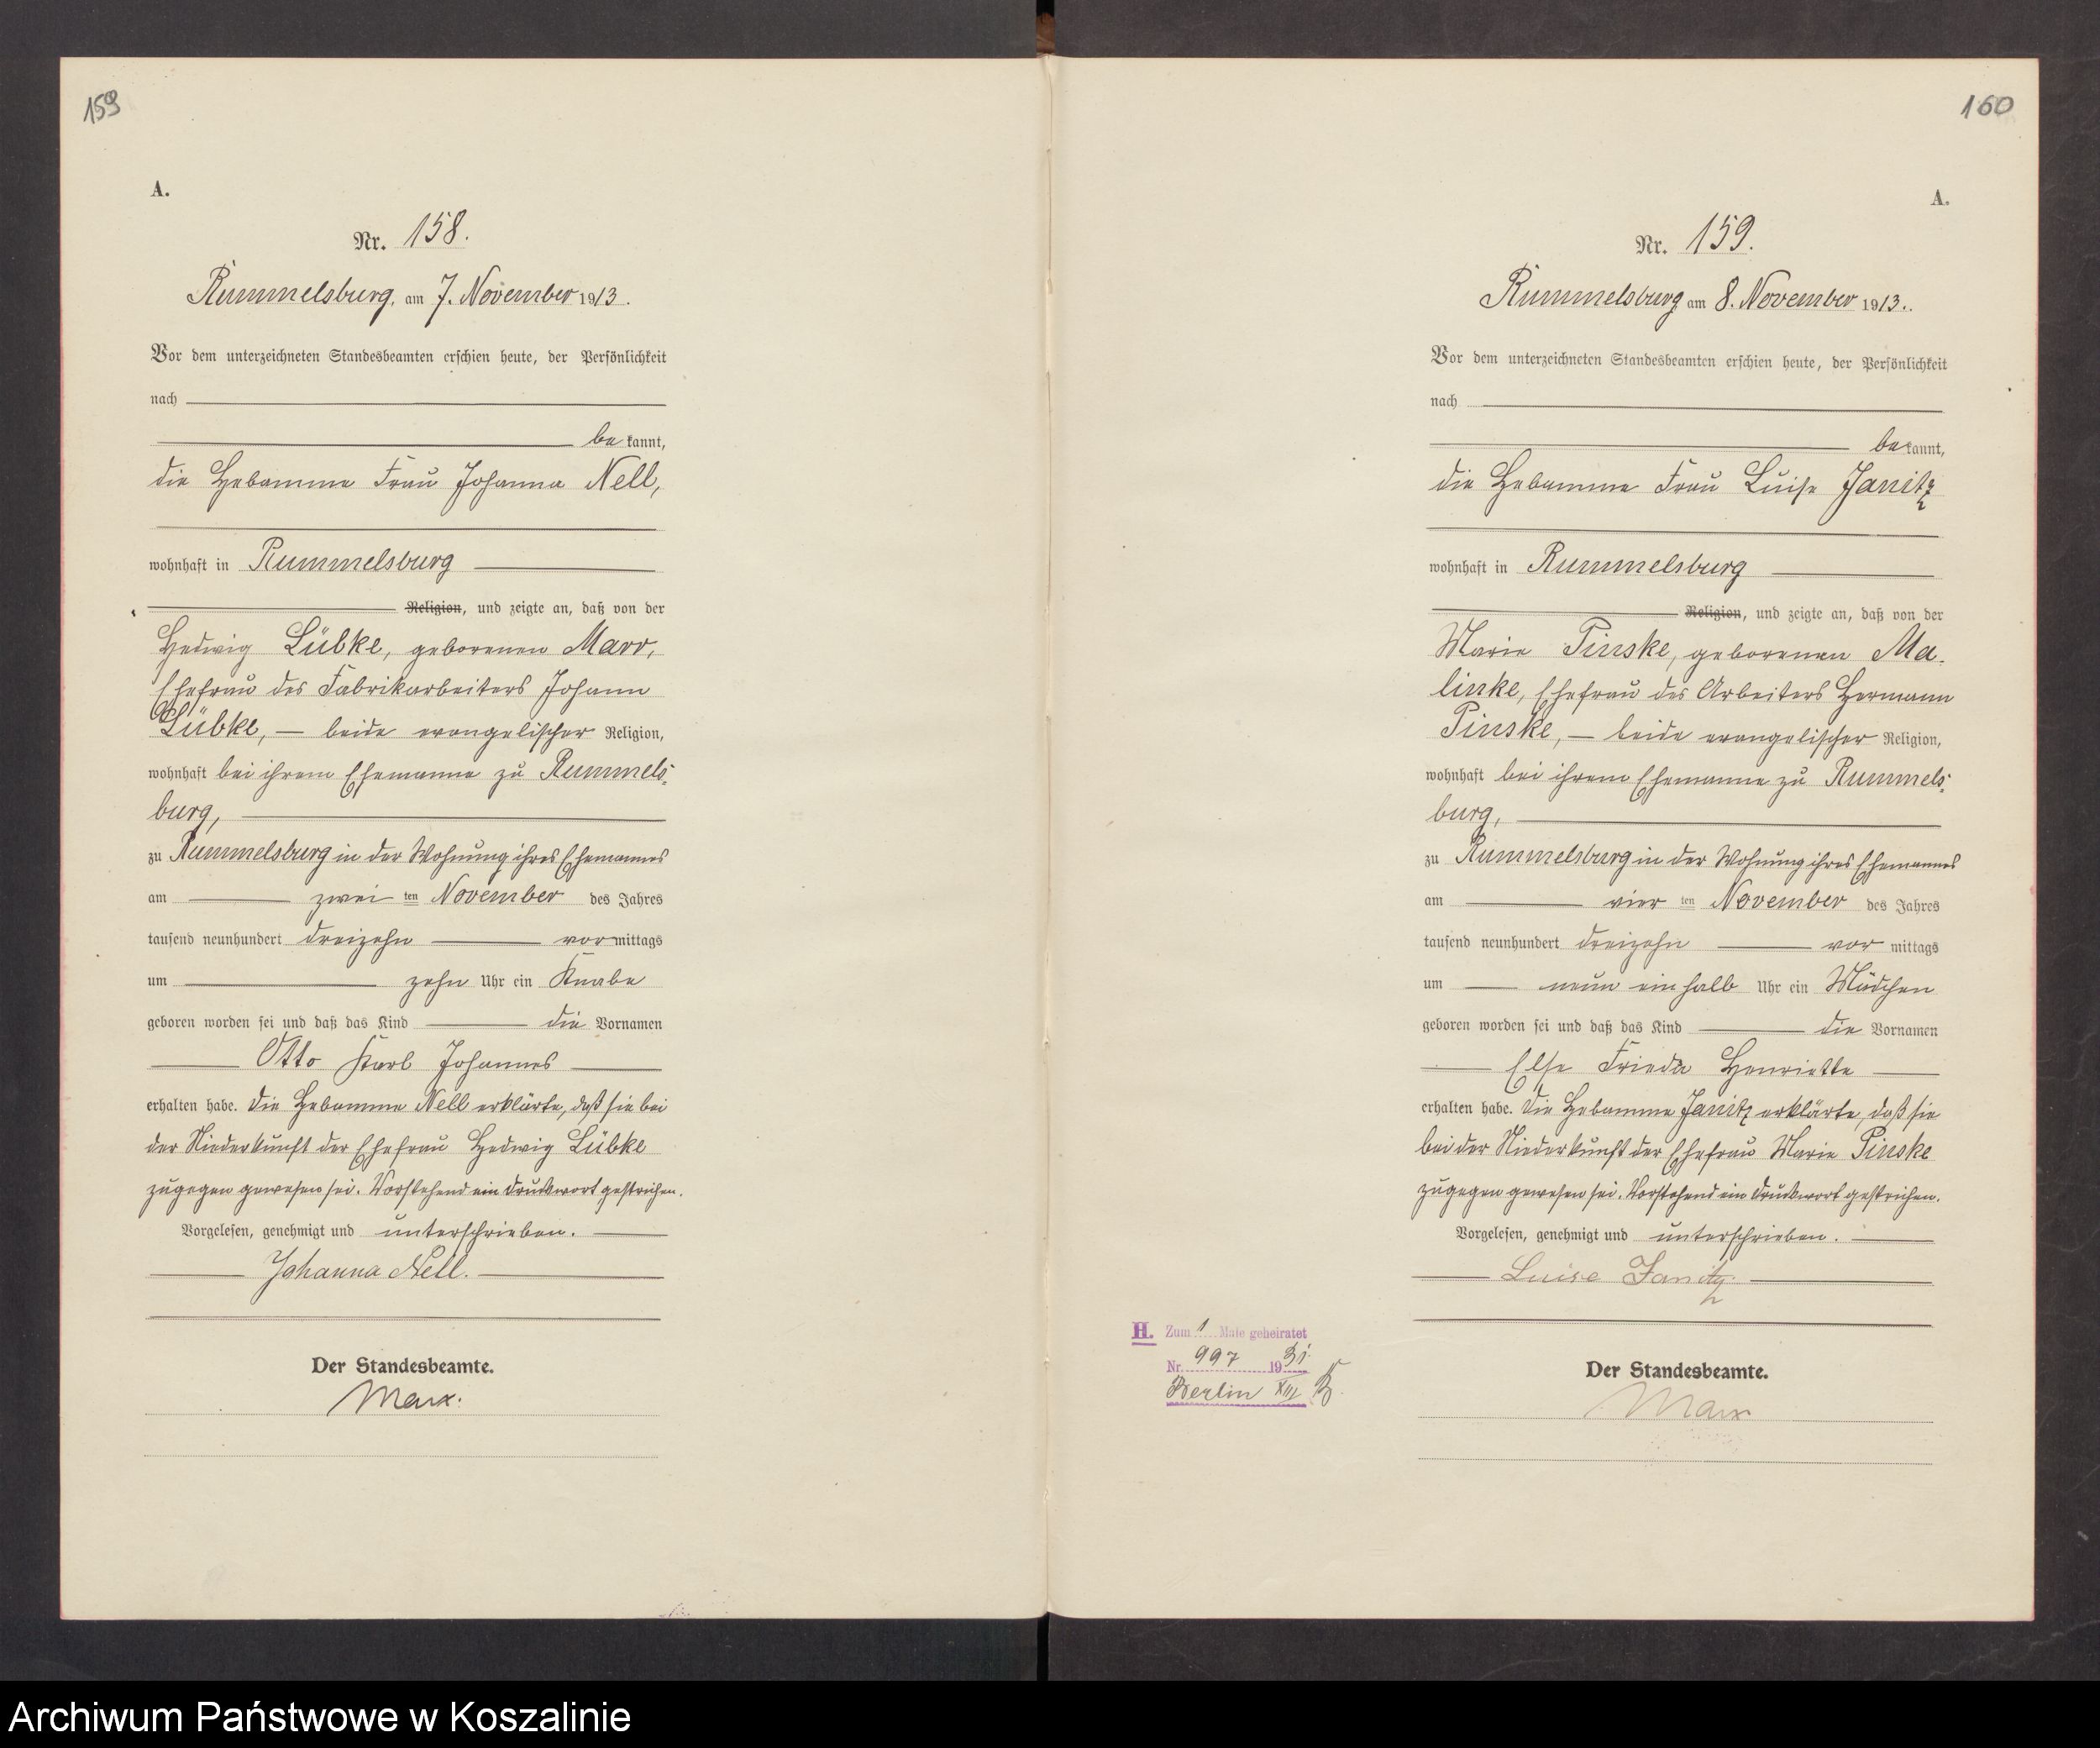 159
A.
Nr. 158.
Rummelsburg, am 7. November 1913.
Vor dem unterzeichneten Standesbeamten erschien heute, der Persönlichkeit
nach
be kannt,
die Hebamme Frau Johanna Nell,
wohnhaft in Rummelsburg
Religion, und zeigte an, daß von der
Hedwig Lübke, geborenen Marr,
Ehefrau des Fabrikarbeiters Johann
Lübke, — beide evangelischer Religion,
wohnhaft bei ihrem Ehemanne zu Rummels-
burg,
zu Rummelsburg in der Wohnung ihres Ehemannes
am zwei ten November des Jahres
tausend neunhundert dreizehn vor mittags
um zehn Uhr ein Knabe
geboren worden sei und daß das Kind die Vornamen
Otto Karl Johannes
erhalten habe. Die Hebamme Nell erklärte, daß sie bei
der Niederkunft der Ehefrau Hedwig Lübke
zugegen gewesen sei. Vorstehend ein Druckwort gestrichen.
Vorgelesen, genehmigt und unterschrieben.
Johanna Nell.
Der Standesbeamte.
Marx.
160
A.
Nr. 159.
Rummelsburg am 8. November 1913.
Vor dem unterzeichneten Standesbeamten erschien heute, der Persönlichkeit
nach
be kannt,
die Hebamme Frau Luise Janitz
wohnhaft in Rummelsburg
Religion, und zeigte an, daß von der
Marie Pinske, geborenen Ma-
linke, Ehefrau des Arbeiters Hermann
Pinske, — beide evangelischer Religion,
wohnhaft bei ihrem Ehemanne zu Rummels-
burg,
zu Rummelsburg in der Wohnung ihres Ehemannes
am vier ten November des Jahres
tausend neunhundert dreizehn vor mittags
um neun ein halb Uhr ein Mädchen
geboren worden sei und daß das Kind die Vornamen
Else Frieda Henriette
erhalten habe. Die Hebamme Janitz erklärte, daß sie
bei der Niederkunft der Ehefrau Marie Pinske
zugegen gewesen sei. Vorstehend ein Druckwort gestrichen.
Vorgelesen, genehmigt und unterschrieben.
Luise Janitz.
Der Standesbeamte.
Marx
H. Zum 1 Male geheiratet
Nr. 997 1931.
Berlin XIII
Archiwum Państwowe w Koszalinie